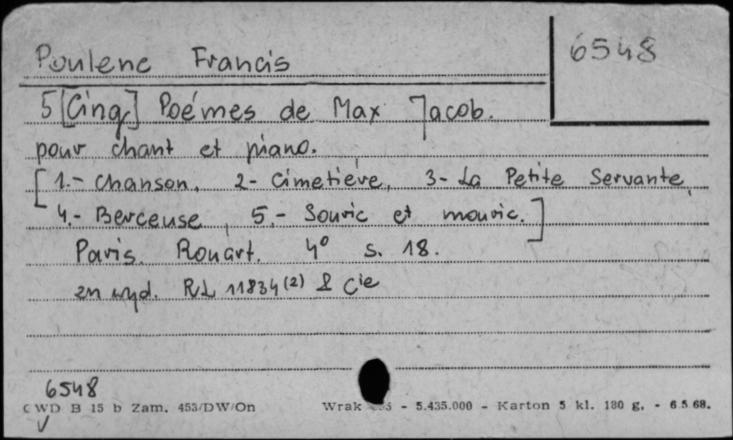 Poulenc Francis
6548
5 [Cinq] Poémes de Max Jacob.
pour chant et piano.
[1.- Chanson, 2- Cimetiére, 3- La Petite Servante,
4.- Berceuse, 5.- Souric et mouric.]
Paris. Rouart. 4° s. 18.
zn wyd. RL 11834 (2) & Cie
6548
CWD B 15 b Zam. 453/DW/On Wrak - 5.435.000 - Karton 5 kl. 180 g. - 6.5.68.